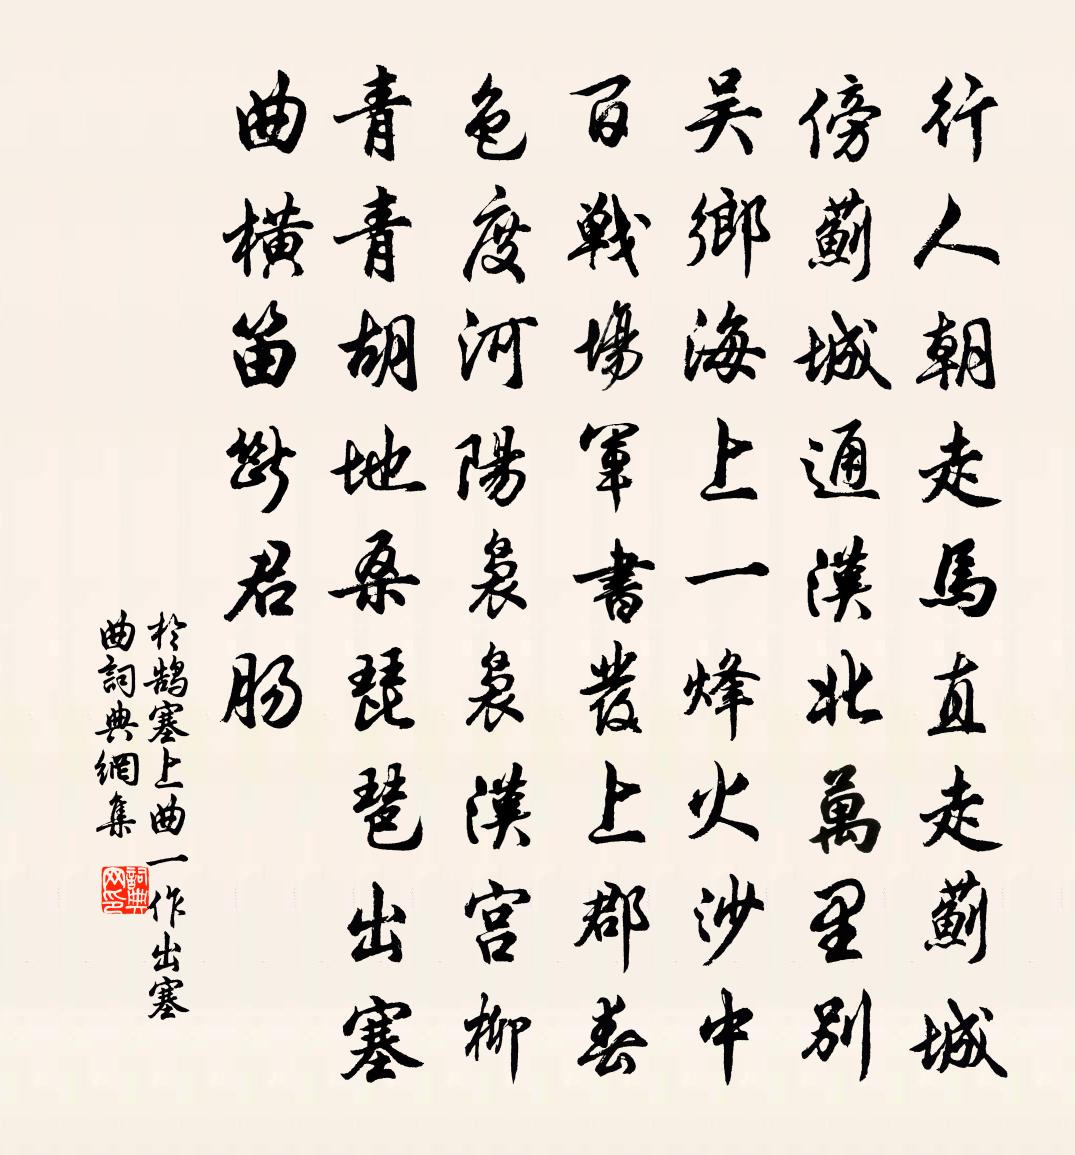 行人朝走馬直走薊城
傍薊城通漢北萬里別
吴鄉海上一烽火沙中
百戰場軍書發上郡春
色度河陽裊裊漢宮柳
青青胡地桑琵琶出塞
曲橫笛斷君腸
於鵠塞上曲一作出塞
曲詞典網集
詞典网印